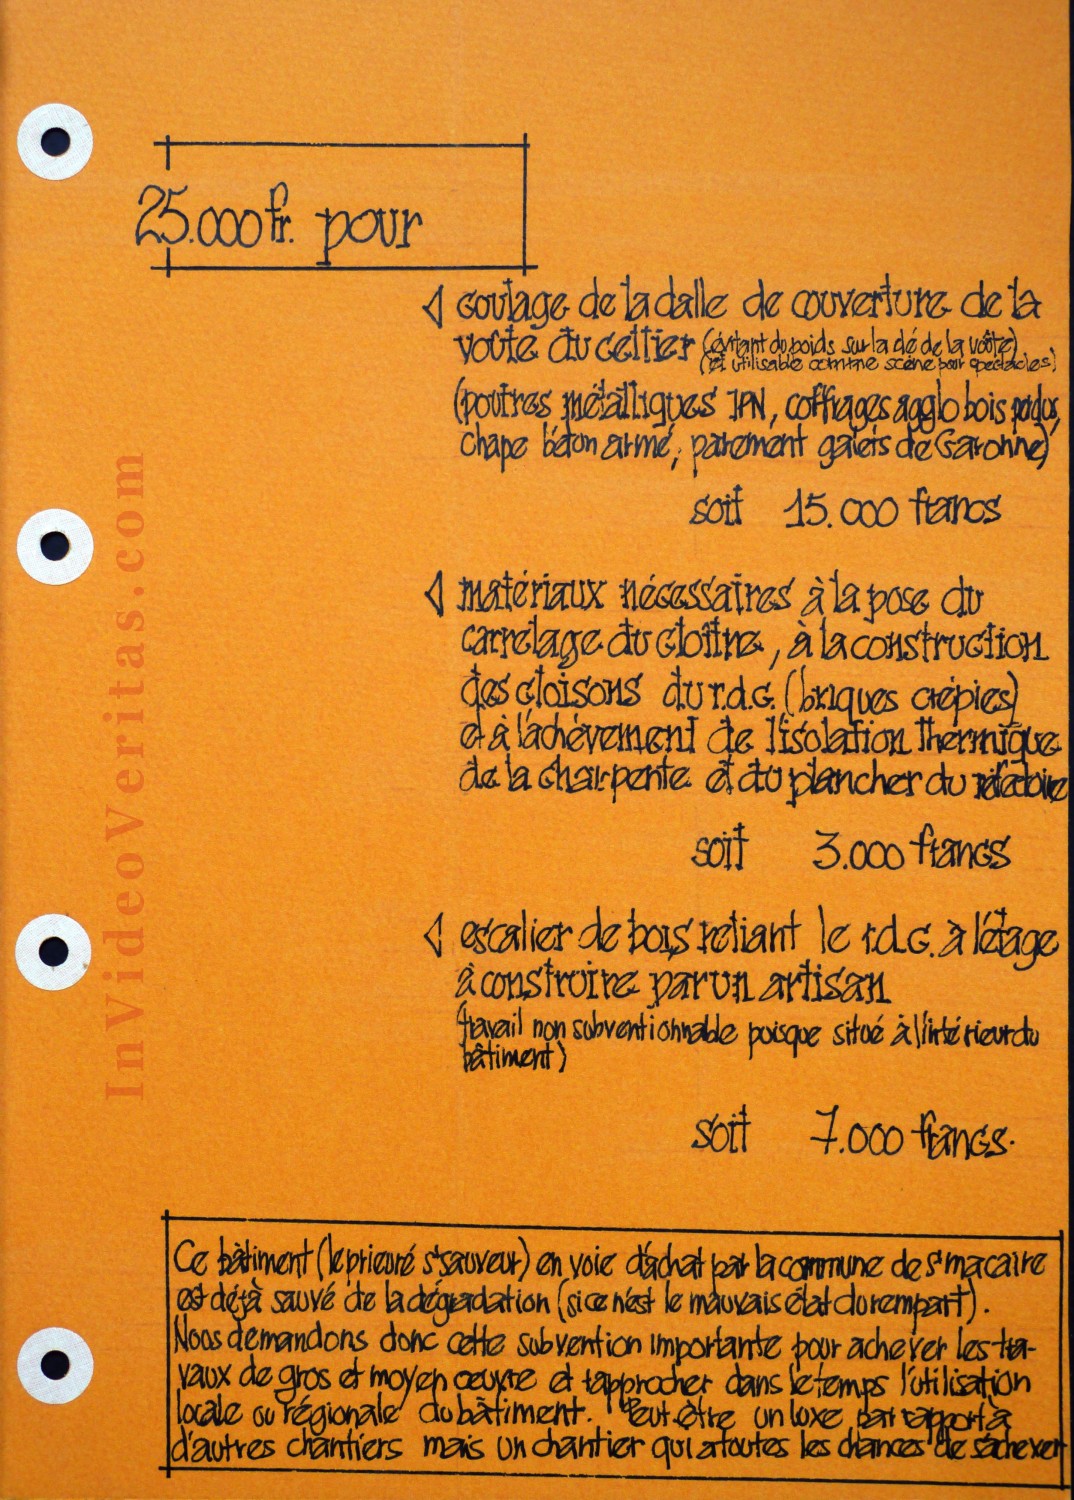 25.000 fr. pour
coulage de la dalle de couverture de la
voûte du cellier (évitant du poids sur la clé de la voûte)
(et utilisable comme scène pour spectacles)
(poutres métalliques IPN, coffrages agglo bois perdus,
chape béton armé, parement galets de Garonne)
soit 15.000 francs
matériaux nécessaires à la pose du
carrelage du cloître, à la construction
des cloisons du r.d.c. (briques crépies)
et à l'achèvement de l'isolation thermique
de la charpente et du plancher du réfectoire
soit 3.000 francs
escalier de bois reliant le r.d.c. à l'étage
à construire par un artisan
(travail non subventionnable puisque situé à l'intérieur du
bâtiment)
soit 7.000 francs.
Ce bâtiment (le prieuré St Sauveur) en voie d'achat par la commune de St macaire
est déjà sauvé de la dégradation (si ce n'est le mauvais état du rempart).
Nous demandons donc cette subvention importante pour achever les tra-
vaux de gros et moyen œuvre et rapprocher dans le temps l'utilisation
locale ou régionale du bâtiment. Peut-être un luxe par rapport à
d'autres chantiers mais un chantier qui a toutes les chances de s'achever
InVideoVeritas.com